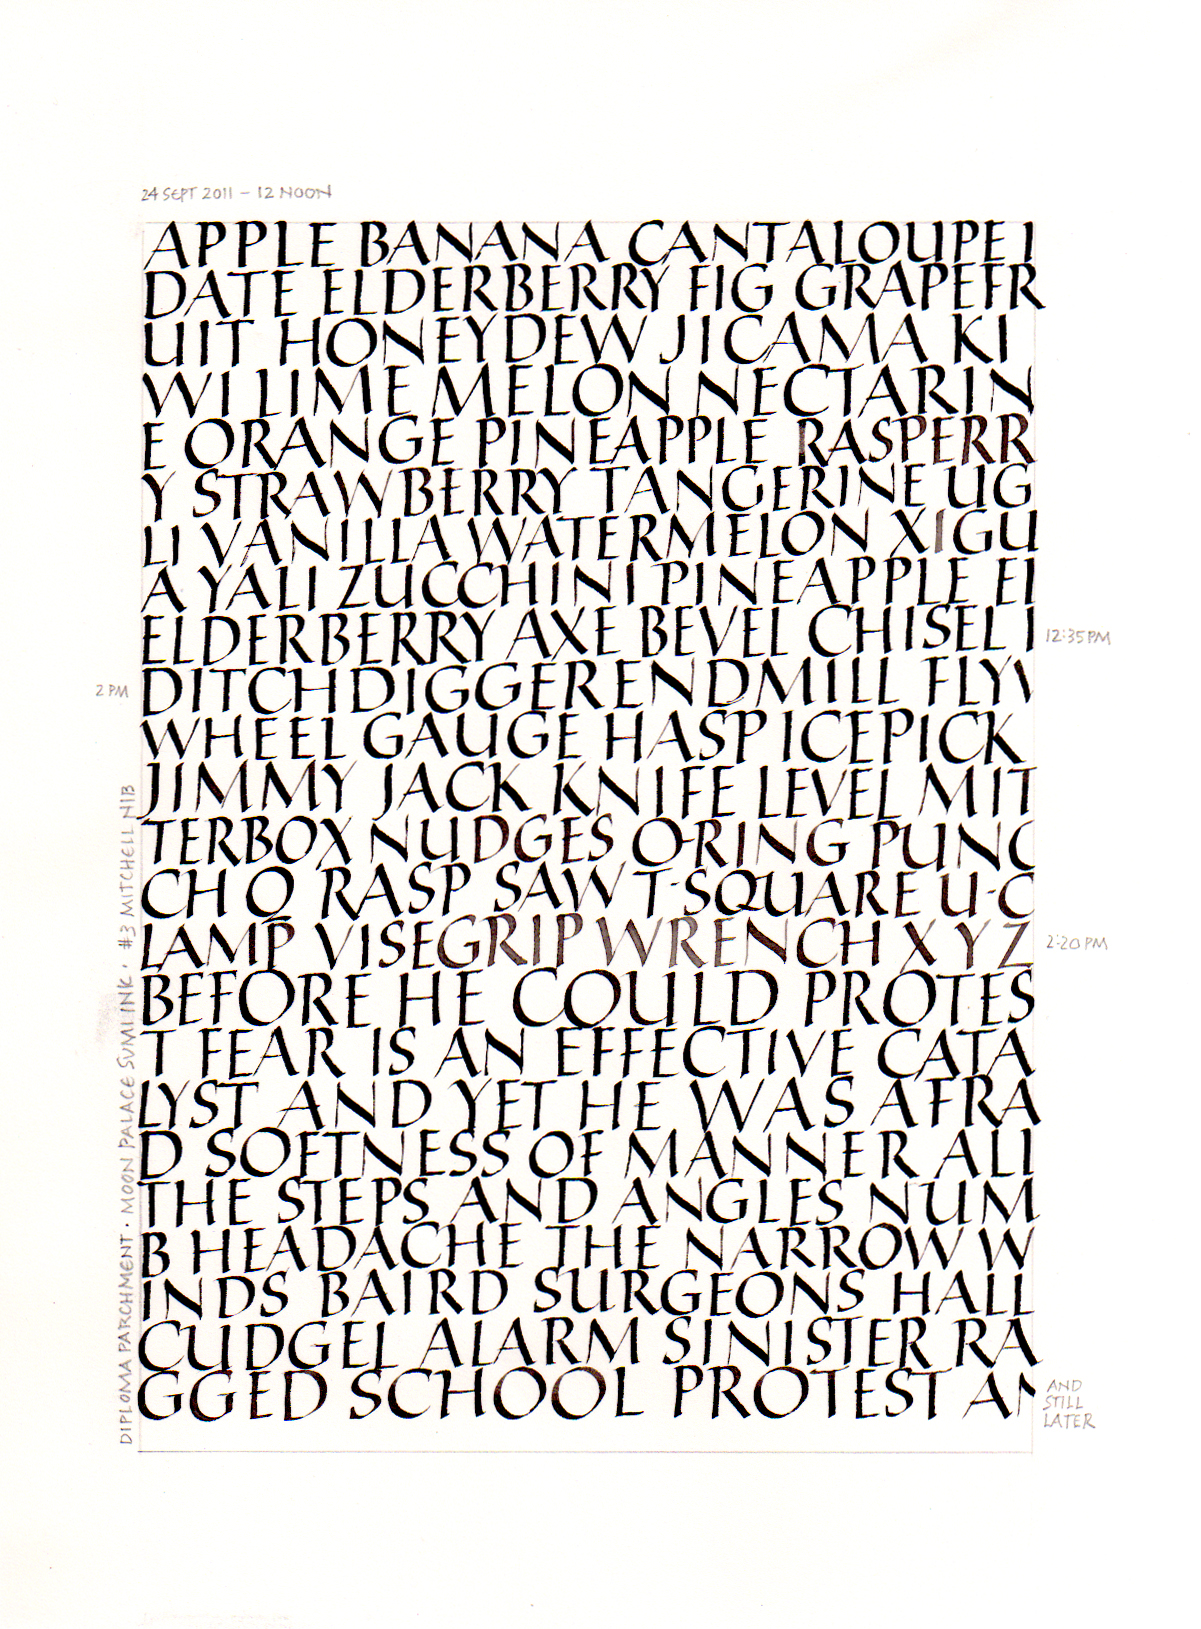 24 SEPT 2011 – 12 NOON
APPLE BANANA CANTALOUPE I
DATE ELDERBERRY FIG GRAPEFR
UIT HONEYDEW JICAMA KI
WI LIME MELON NECTARIN
E ORANGE PINEAPPLE RASPERR
Y STRAWBERRY TANGERINE UG
LI VANILLA WATERMELON XIGU
A YALI ZUCCHINI PINEAPPLE EI
ELDERBERRY AXE BEVEL CHISEL I
12:35 PM
2 PM
DITCHDIGGER ENDMILL FLYW
WHEEL GAUGE HASP ICEPICK
JIMMY JACK KNIFE LEVEL MIT
TERBOX NUDGES O-RING PUNC
CH Q RASP SAW T-SQUARE U-C
LAMP VISEGRIP WRENCH X Y Z
2:20 PM
BEFORE HE COULD PROTES
T FEAR IS AN EFFECTIVE CATA
LYST AND YET HE WAS AFRA
D SOFTNESS OF MANNER ALI
THE STEPS AND ANGLES NUM
B HEADACHE THE NARROW W
INDS BAIRD SURGEONS HALL
CUDGEL ALARM SINISTER RA
GGED SCHOOL PROTEST AN
AND
STILL
LATER
DIPLOMA PARCHMENT · MOON PALACE SUMI INK · #3 MITCHELL NIB